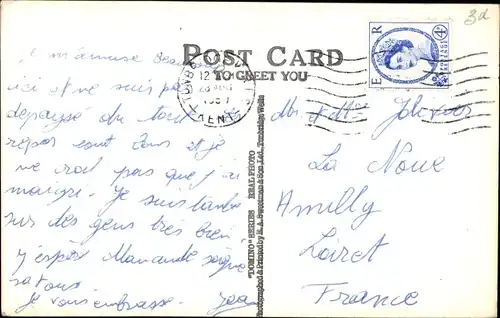 3d
POST CARD
TO GREET YOU
E R
4D
je m'amuse beaucoup
ici et ne suis pas
dépaysé du tout
repos sont bons et je
ne crois pas que j'ai
maigri. Je suis tombé
sur des gens très bien
j'espère Mamande soigne
sa toux.
je vous embrasse.
"DOMINO" SERIES REAL PHOTO
Photographed & Printed by H. A. Sweetman & Son Ltd., Tunbridge Wells
KENT
Mr. et Mme
La Noue
Amilly
Loiret
France